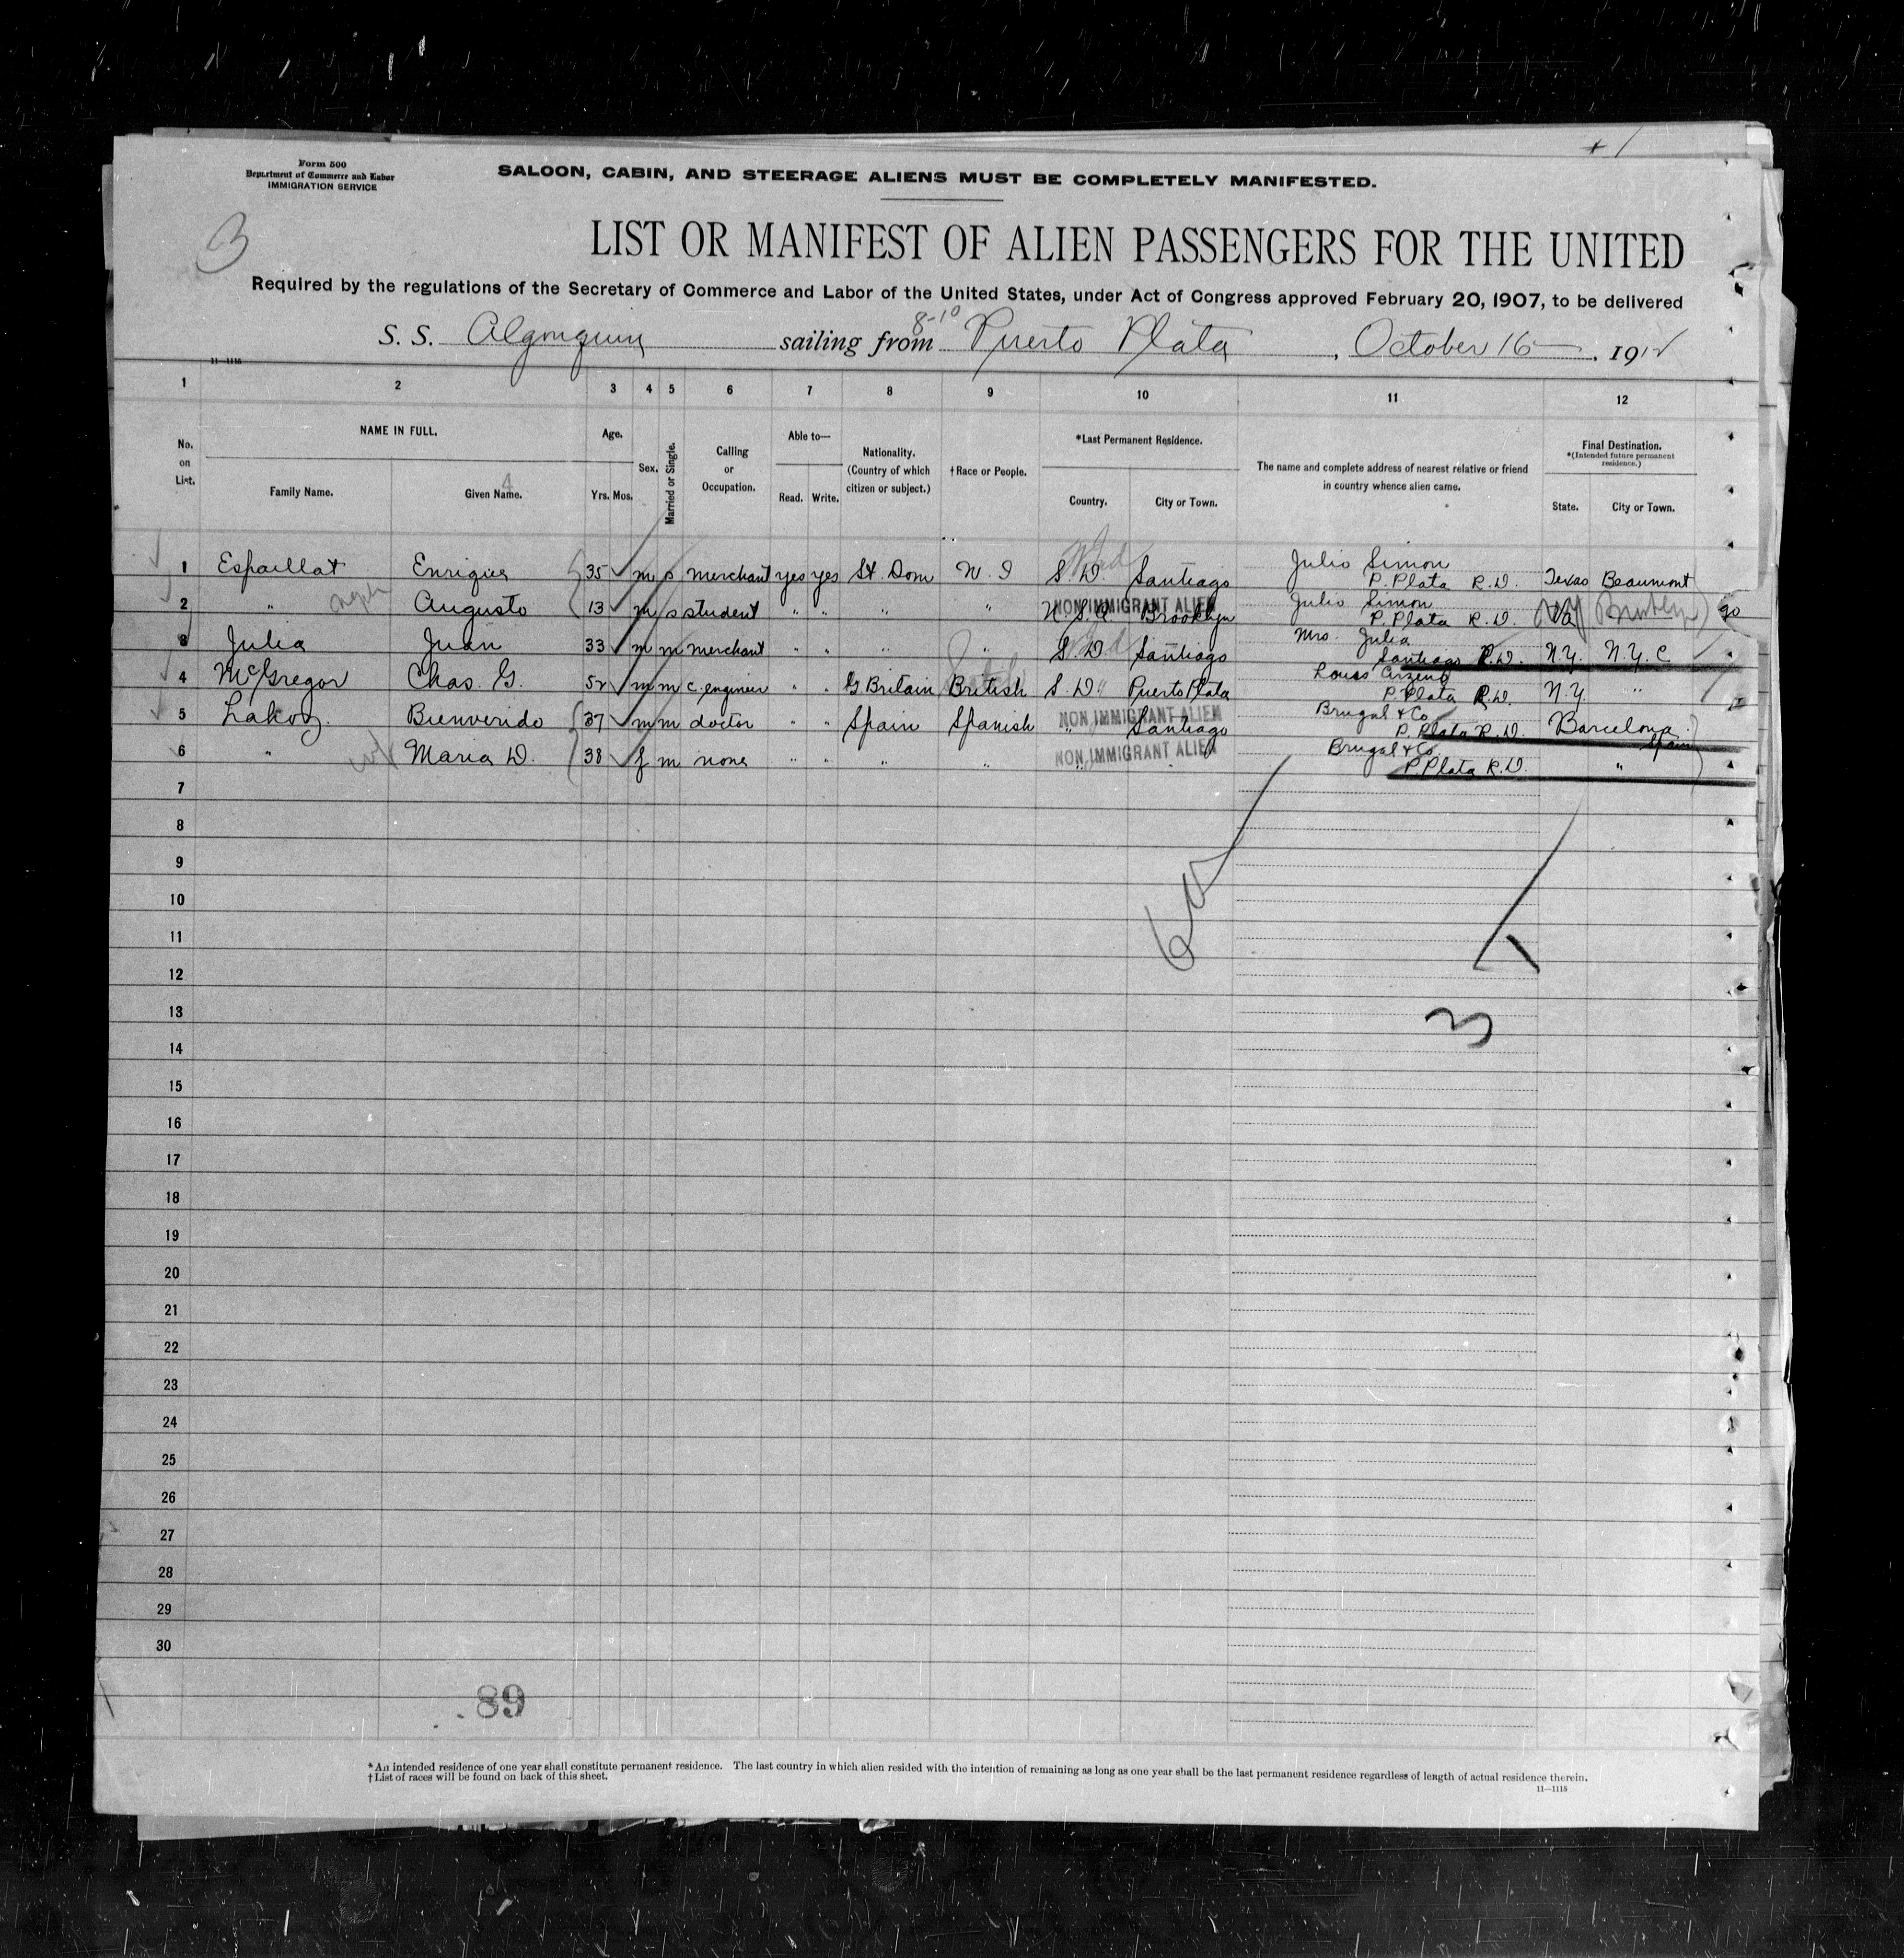 + 1
Form 500
Department of Commerce and Labor
IMMIGRATION SERVICE
SALOON, CABIN, AND STEERAGE ALIENS MUST BE COMPLETELY MANIFESTED.
3
LIST OR MANIFEST OF ALIEN PASSENGERS FOR THE UNITED
Required by the regulations of the Secretary of Commerce and Labor of the United States, under Act of Congress approved February 20, 1907, to be delivered
8-10
S. S. Algonquin sailing from Puerto Plata, October 16, 1912
11—1115
1 2 3 4 5 6 7 8 9 10 11 12
No. on List.
NAME IN FULL.
Family Name. Given Name.
4
Age.
Yrs. Mos.
Sex.
Married or Single.
Calling or Occupation.
Able to—
Read. Write.
Nationality.
(Country of which citizen or subject.)
†Race or People.
*Last Permanent Residence.
Country. City or Town.
The name and complete address of nearest relative or friend
in country whence alien came.
Final Destination.
*(Intended future permanent residence.)
State. City or Town.
1 Espaillat Enrique 35 m s merchant yes yes St. Dom W. I S. D. Santiago Julio Simon P. Plata R.D. Texas Beaumont
2 " Augusto 13 m s student " " " " U. S. A. Brooklyn Julio Simon P. Plata R.D.
NON IMMIGRANT ALIEN
3 Julia Juan 33 m m merchant " " " " S. D. Santiago Mrs. Julia Santiago R.D. N.Y. N.Y.C
4 McGregor Chas. G. 52 m m c. engineer " " G Britain British S. D. Puerto Plata P. Plata R.D. N.Y. "
5 Bienvenido 37 m m doctor " " Spain Spanish " Santiago Brugal & Co P. Plata R.D. Barcelona Spain
NON IMMIGRANT ALIEN
6 " wf Maria D. 38 f m none " " " " " Brugal & Co. P. Plata R.D. "
NON IMMIGRANT ALIEN
7
8
9
10
11
12
13
14
15
16
17
18
19
20
21
22
23
24
25
26
27
28
29
30
3
89
*An intended residence of one year shall constitute permanent residence. The last country in which alien resided with the intention of remaining as long as one year shall be the last permanent residence regardless of length of actual residence therein.
†List of races will be found on back of this sheet.
11—1115